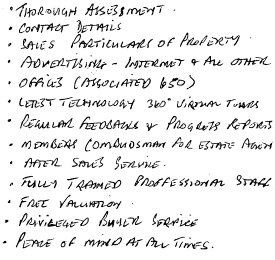 · THOROUGH ASSESSMENT.
· CONTACT DETAILS
· SALES PARTICULARS OF PROPERTY
· ADVERTISING - INTERNET & ALL OTHER
· OFFICES (ASSOCIATED 650)
· LATEST TECHNOLOGY 360° VIRTUAL TOURS
· REGULAR FEEDBACKS & PROGRESS REPORTS
· MEMBERS (OMBUDSMAN FOR ESTATE AGEN
· AFTER SALES SERVICE.
· FULLY TRAINED PROFFESSIONAL STAFF
· FREE VALUATION.
· PRIVILEGED BUYER SERVICE
· PEACE OF MIND AT ALL TIMES.